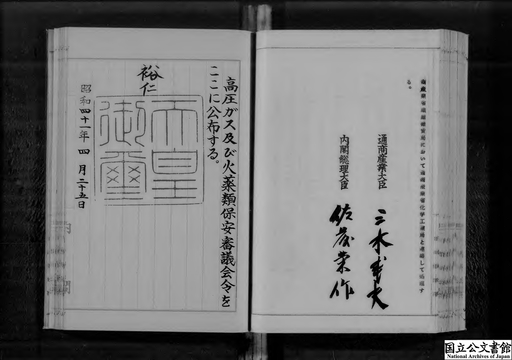 通商産業大臣 三木武夫
内閣総理大臣 佐藤栄作
高圧ガス及び火薬類保安審議会令を
ここに公布する。
裕仁
天皇
御璽
昭和四十一年四月二十五日
国立公文書館
National Archives of Japan